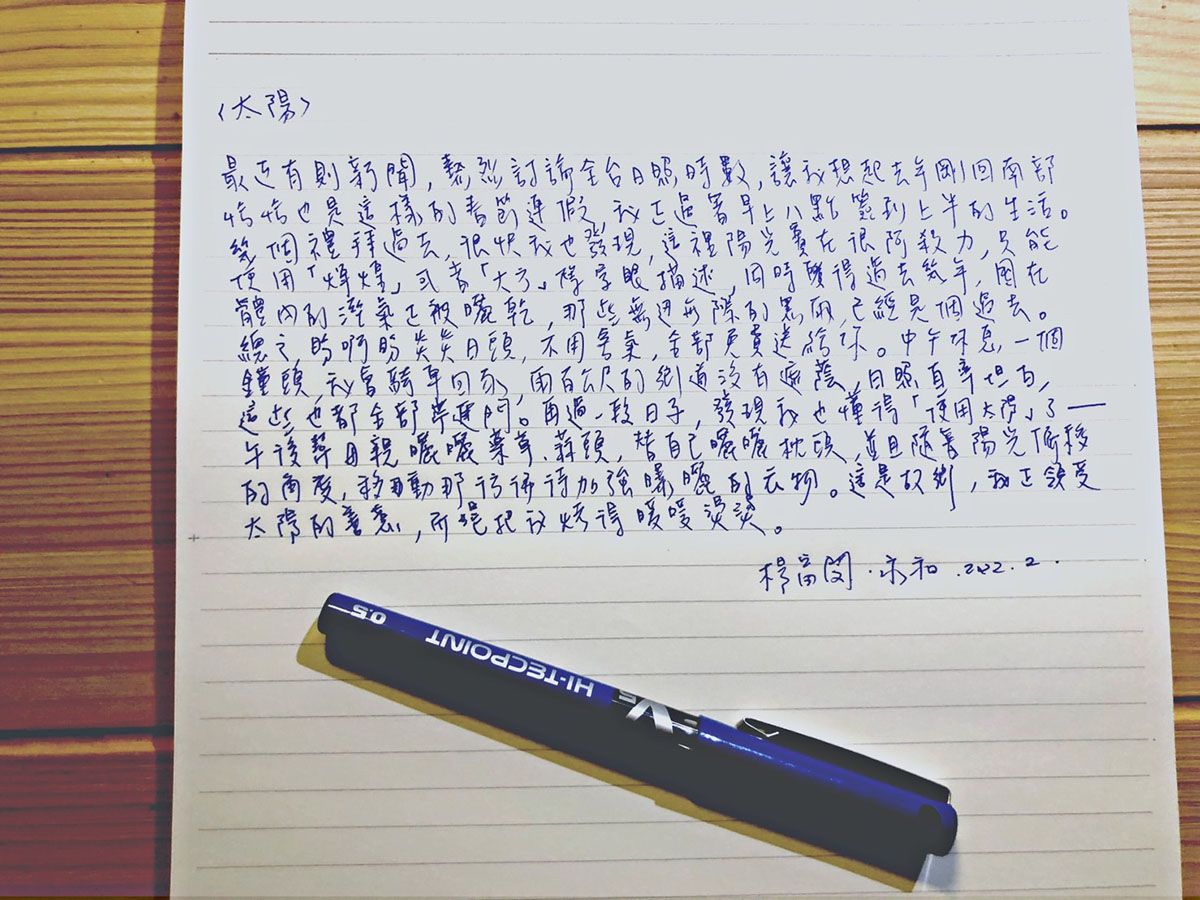 〈太陽〉
最近有則新聞，熱烈討論全台日照時數，讓我想起去年剛回南部
恰恰也是這樣的春節連假，我正過著早上八點簽到上半的生活。
幾個禮拜過去，很快我也發現，這裡陽光實在很阿殺力，只能
使用「輝煌」或者「大方」等字眼描述，同時覺得過去幾年，囤在
體內的溼氣正被曬乾，那些無邊無際的黑雨，已經是個過去。
總之，盼啊盼炎炎日頭，不用客氣，全部免費送給你。中午休息一個
鐘頭，我會騎車回家，兩百公尺的鄉道沒有遮蔭，日照直率坦白，
這些也都全部幸運鬥。再過一段日子，發現我也懂得「使用太陽」了——
午後幫母親曬曬藥草、蒜頭，替自己曬曬枕頭，並且隨著陽光偏移
的角度，移動那彷彿待加強曝曬的衣物。這是故鄉，我正領受
太陽的善意，所望把我烤得暖暖燙燙。
楊富閔．永和．2022．2．
0.5
HI-TECPOINT
V5